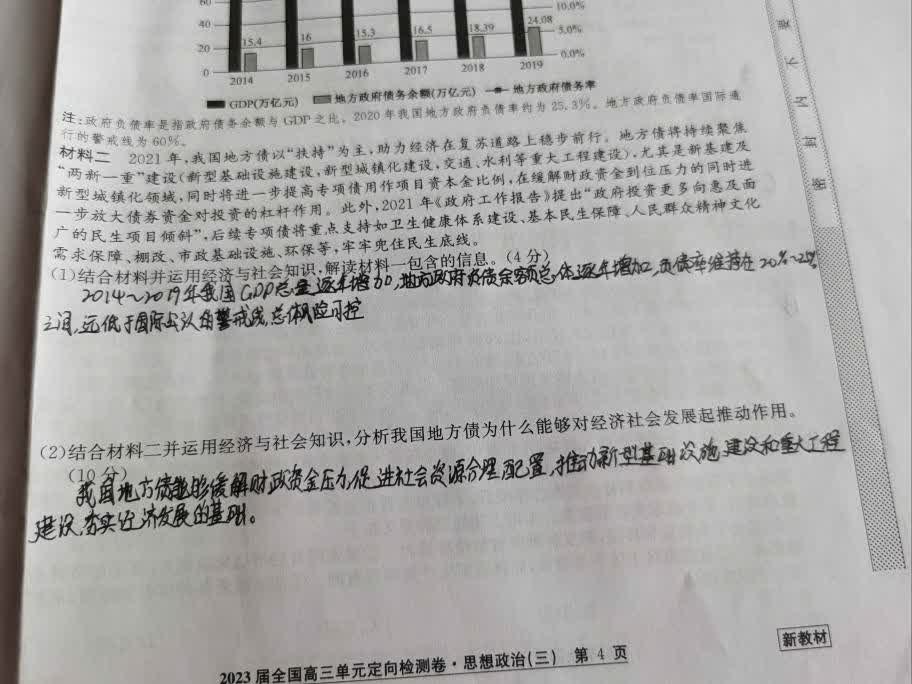 60
40
20
0
15.4
16
15.3
16.5
18.39
24.08
10.0%
5.0%
0.0%
2014 2015 2016 2017 2018 2019
GDP(万亿元) 地方政府债务余额(万亿元) 地方政府债务率
注:政府负债率是指政府债务余额与GDP之比。2020年我国地方政府负债率约为25.3%。地方政府负债率国际通
行的警戒线为60%。
材料二 2021年,我国地方债以“扶持”为主,助力经济在复苏道路上稳步前行。地方债将持续聚焦
“两新一重”建设(新型基础设施建设,新型城镇化建设,交通、水利等重大工程建设),尤其是新基建及
新型城镇化领域,同时将进一步提高专项债用作项目资本金比例,在缓解财政资金到位压力的同时进
一步放大债券资金对投资的杠杆作用。此外,2021年《政府工作报告》提出“政府投资更多向惠及面
广的民生项目倾斜”,后续专项债将重点支持如卫生健康体系建设、基本民生保障、人民群众精神文化
需求保障、棚改、市政基础设施、环保等,牢牢兜住民生底线。
(1)结合材料并运用经济与社会知识,解读材料一包含的信息。(4分)
2014~2019年我国GDP总量逐年增加,地方政府负债余额总体逐年增加,负债率维持在20%~25%
之间,远低于国际公认的警戒线,总体风险可控
(2)结合材料二并运用经济与社会知识,分析我国地方债为什么能够对经济社会发展起推动作用。
(10分)
我国地方债能够缓解财政资金压力,促进社会资源合理配置,推动新型基础设施建设和重大工程
建设,夯实经济发展的基础。
新教材
2023届全国高三单元定向检测卷·思想政治(三) 第4页
密
封
内
不
要